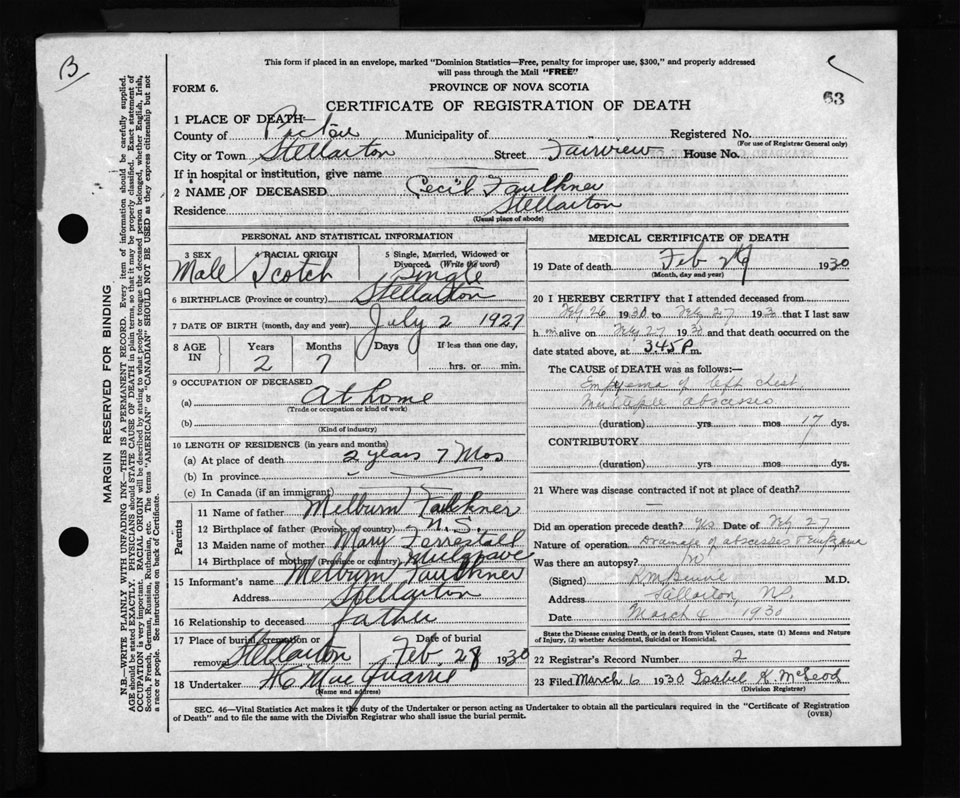 B
This form if placed in an envelope, marked "Dominion Statistics—Free, penalty for improper use, $300," and properly addressed
will pass through the Mail "FREE"
FORM 6.
PROVINCE OF NOVA SCOTIA
63
CERTIFICATE OF REGISTRATION OF DEATH
1 PLACE OF DEATH—
County of Pictou Municipality of Registered No.
(For use of Registrar General only)
City or Town Stellarton Street Fairview House No.
If in hospital or institution, give name
2 NAME OF DECEASED Cecil Faulkner
Residence Stellarton
(Usual place of abode)
MARGIN RESERVED FOR BINDING
N.B—WRITE PLAINLY WITH UNFADING INK—THIS IS A PERMANENT RECORD. Every item of information should be carefully supplied.
AGE should be stated EXACTLY. PHYSICIANS should STATE CAUSE OF DEATH in plain terms, so that it may be properly classified. Exact statement of
OCCUPATION is very important. RACIAL ORIGIN will be described by stating to what people or tongue the deceased person belonged, whether English, Irish,
Scotch, French, German, Russian, Ruthenian, etc. The terms "AMERICAN" or "CANADIAN" SHOULD NOT BE USED as they express citizenship but not
a race or people. See instructions on back of Certificate.
PERSONAL AND STATISTICAL INFORMATION
3 SEX 4 RACIAL ORIGIN 5 Single, Married, Widowed or
Divorced (Write the word)
Male Scotch Single
6 BIRTHPLACE (Province or country) Stellarton
7 DATE OF BIRTH (month, day and year) July 2 1927
8 AGE IN Years Months Days If less than one day,
2 7 hrs. or min.
9 OCCUPATION OF DECEASED
(a) At home
(Trade or occupation or kind of work)
(b)
(Kind of industry)
10 LENGTH OF RESIDENCE (in years and months)
(a) At place of death 2 years 7 Mos
(b) In province
(c) In Canada (if an immigrant)
Parents
11 Name of father Melburn Faulkner
12 Birthplace of father (Province or country) N.S.
13 Maiden name of mother Mary Ferrestall
14 Birthplace of mother (Province or country) Mulgrave
15 Informant's name Melburn Faulkner
Address Stellarton
16 Relationship to deceased father
17 Place of burial, cremation or Date of burial
removal Stellarton Feb. 28 1930
18 Undertaker HC MacQuarrie
(Name and address)
MEDICAL CERTIFICATE OF DEATH
19 Date of death Feb 1930
(Month, day and year)
20 I HEREBY CERTIFY that I attended deceased from
Feb 26 1930 to Feb 27 1930 that I last saw
h im alive on Feb 27 1930 and that death occurred on the
date stated above, at 3.45 P. m.
The CAUSE of DEATH was as follows:—
Empyema of left chest
Multiple abscesses
(duration) yrs mos 17 dys.
CONTRIBUTORY
(duration) yrs. mos. dys.
21 Where was disease contracted if not at place of death?
Did an operation precede death? Yes Date of Feb 27
Nature of operation Drainage of abscesses & empyema
Was there an autopsy? No
(Signed) M.D.
Address Stellarton, N.S.
Date March 4 1930
State the Disease causing Death, or in death from Violent Causes, state (1) Means and Nature
of Injury, (2) whether Accidental, Suicidal or Homicidal.
22 Registrar's Record Number 2
23 Filed March 6 1930 Isabel K. McLeod
(Division Registrar)
SEC. 46—Vital Statistics Act makes it the duty of the Undertaker or person acting as Undertaker to obtain all the particulars required in the "Certificate of Registration
of Death" and to file the same with the Division Registrar who shall issue the burial permit. (OVER)